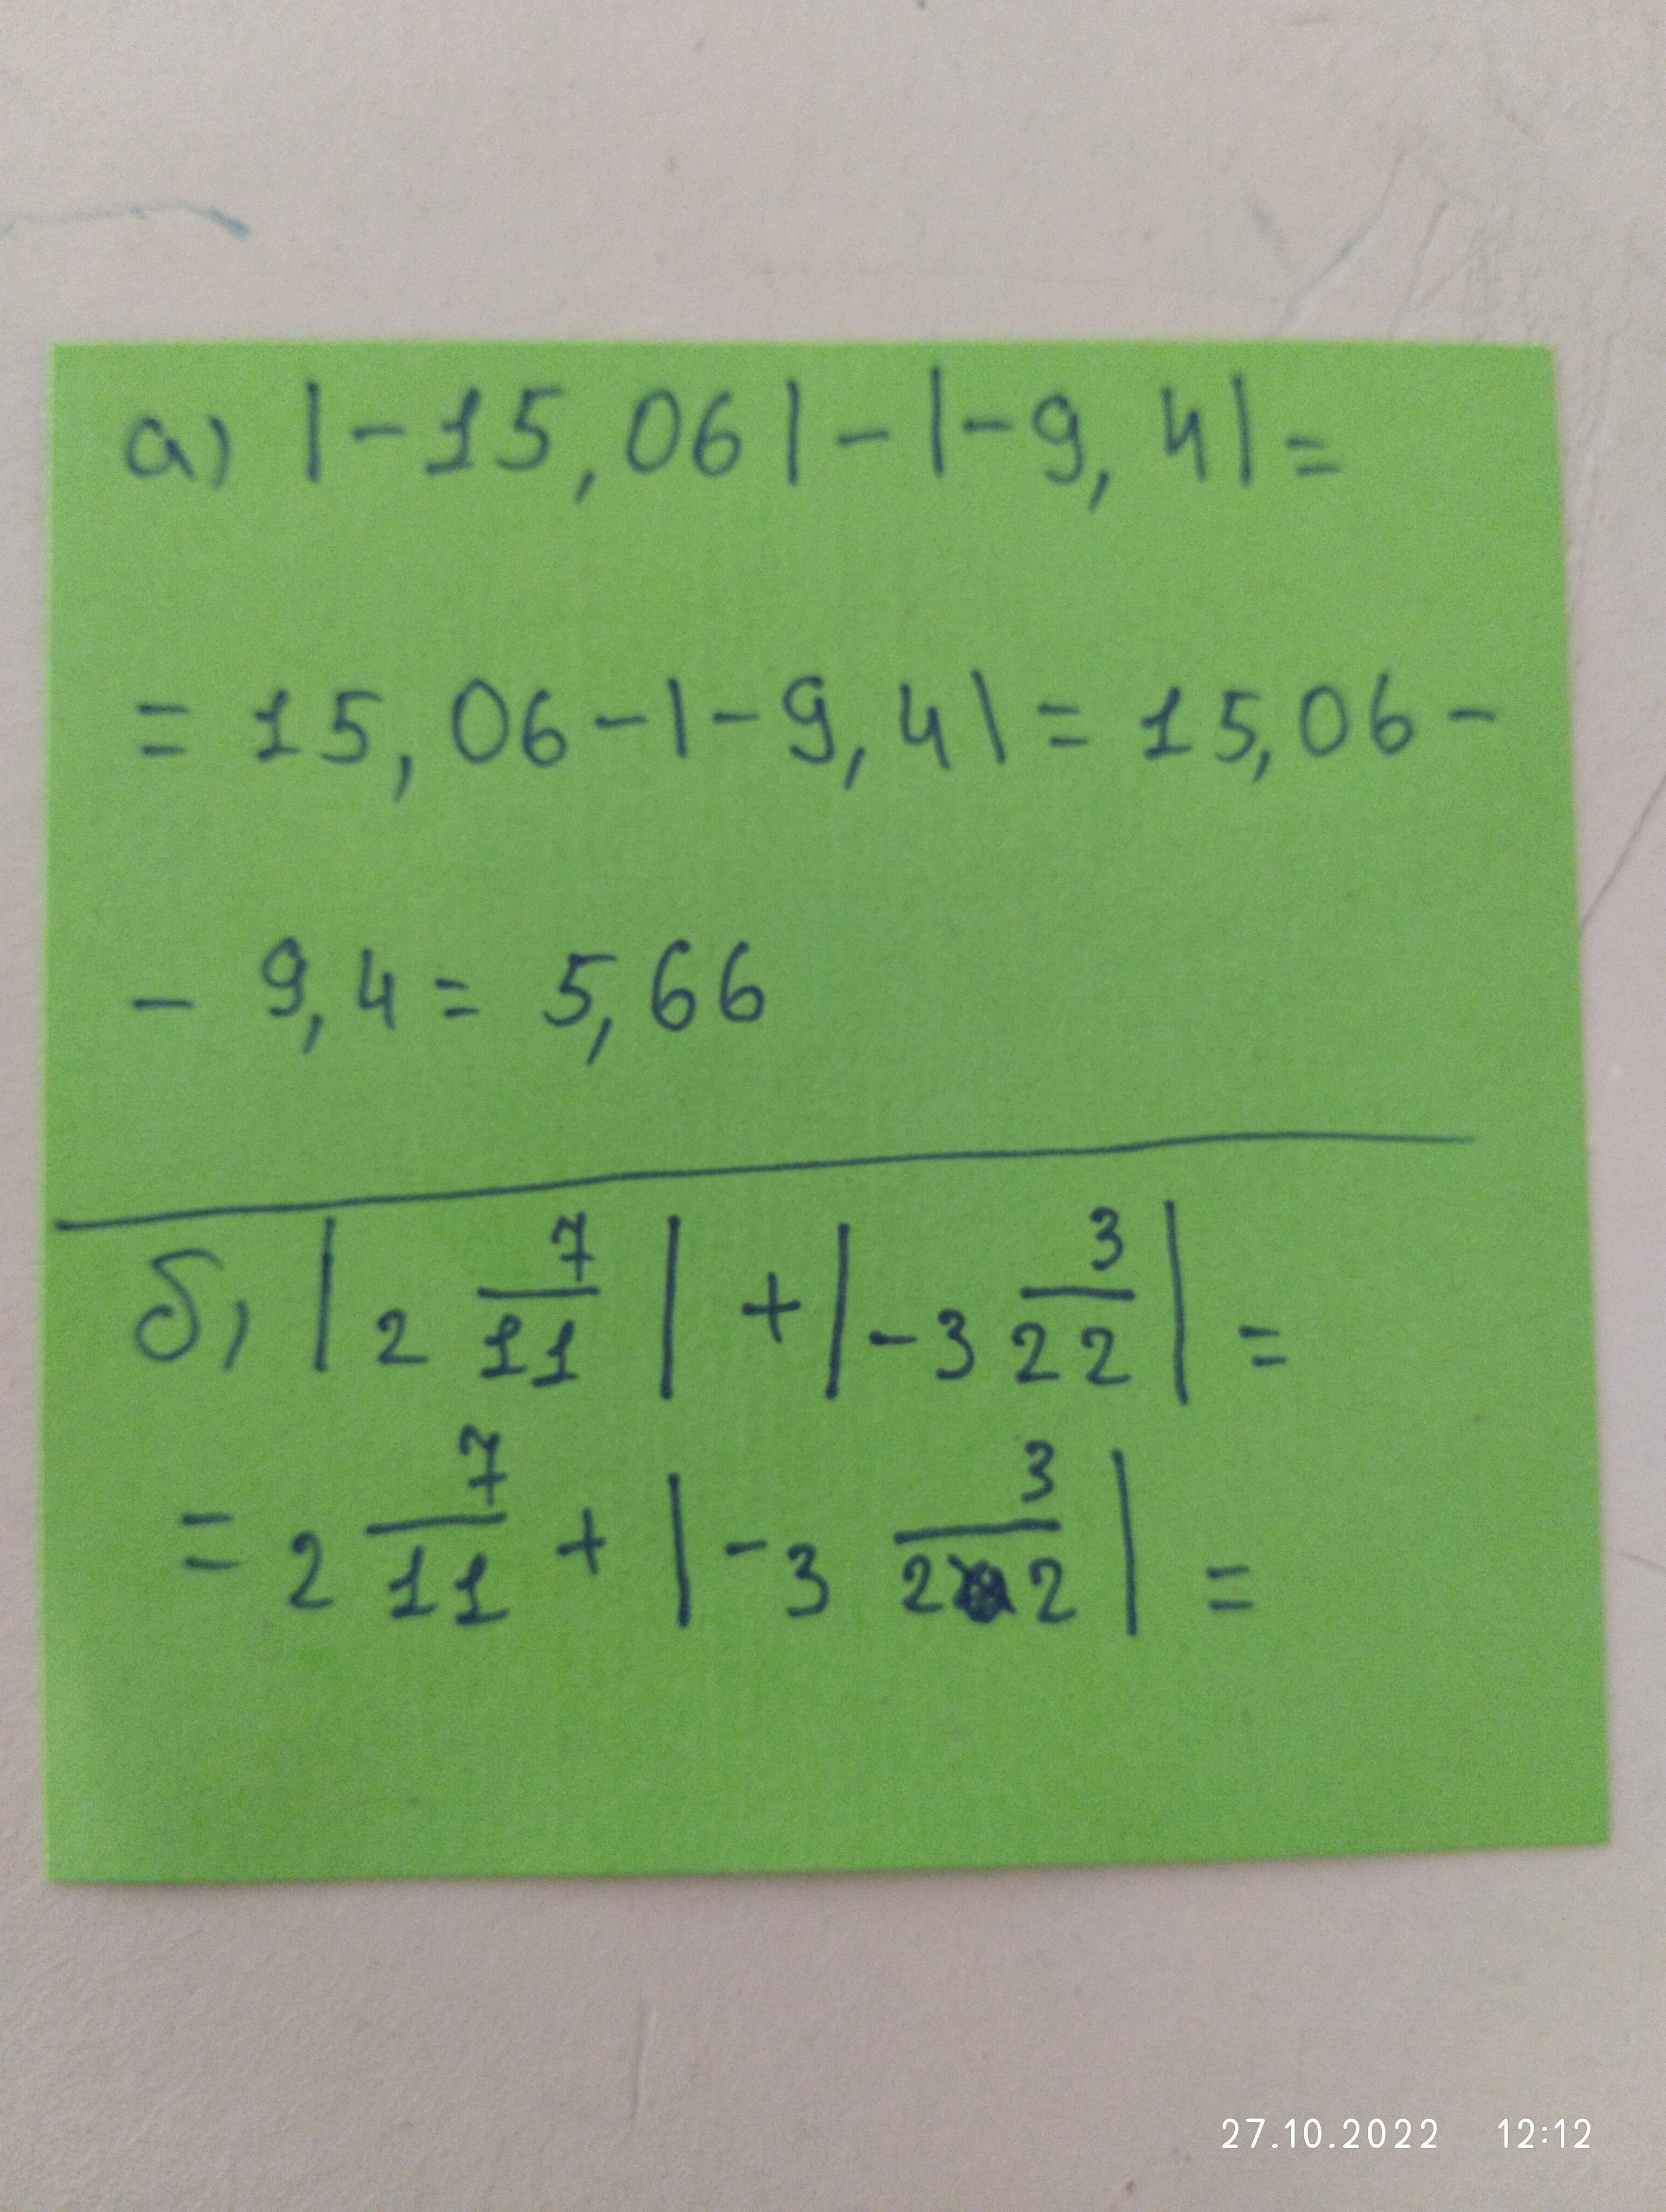 а) |-15,06|-|-9,4|=
= 15,06-|-9,4|= 15,06-
- 9,4= 5,66
б) |2 7/11| + |-3 3/22| =
= 2 7/11 + |-3 3/22| =
27.10.2022 12:12